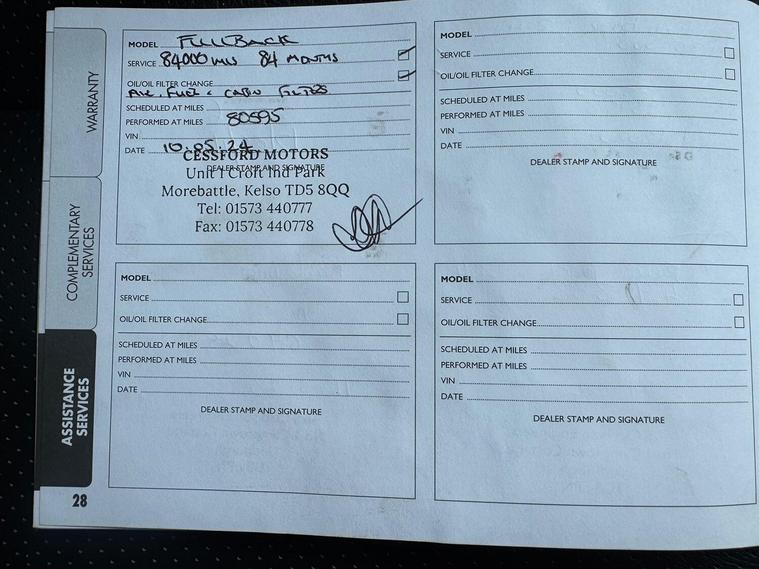 WARRANTY
COMPLEMENTARY
SERVICES
ASSISTANCE
SERVICES
28
MODEL FULLBACK
SERVICE 84000 MLS 84 MONTHS
OIL/OIL FILTER CHANGE
AIR, FUEL & CABIN FILTERS
SCHEDULED AT MILES
PERFORMED AT MILES 80595
VIN
DATE 10.05.24
CESSFORD MOTORS
DEALER STAMP AND SIGNATURE
Unit 1 Croft Ind Park
Morebattle, Kelso TD5 8QQ
Tel: 01573 440777
Fax: 01573 440778
MODEL
SERVICE
OIL/OIL FILTER CHANGE
SCHEDULED AT MILES
PERFORMED AT MILES
VIN
DATE
DEALER STAMP AND SIGNATURE
MODEL
SERVICE
OIL/OIL FILTER CHANGE
SCHEDULED AT MILES
PERFORMED AT MILES
VIN
DATE
DEALER STAMP AND SIGNATURE
MODEL
SERVICE
OIL/OIL FILTER CHANGE
SCHEDULED AT MILES
PERFORMED AT MILES
VIN
DATE
DEALER STAMP AND SIGNATURE